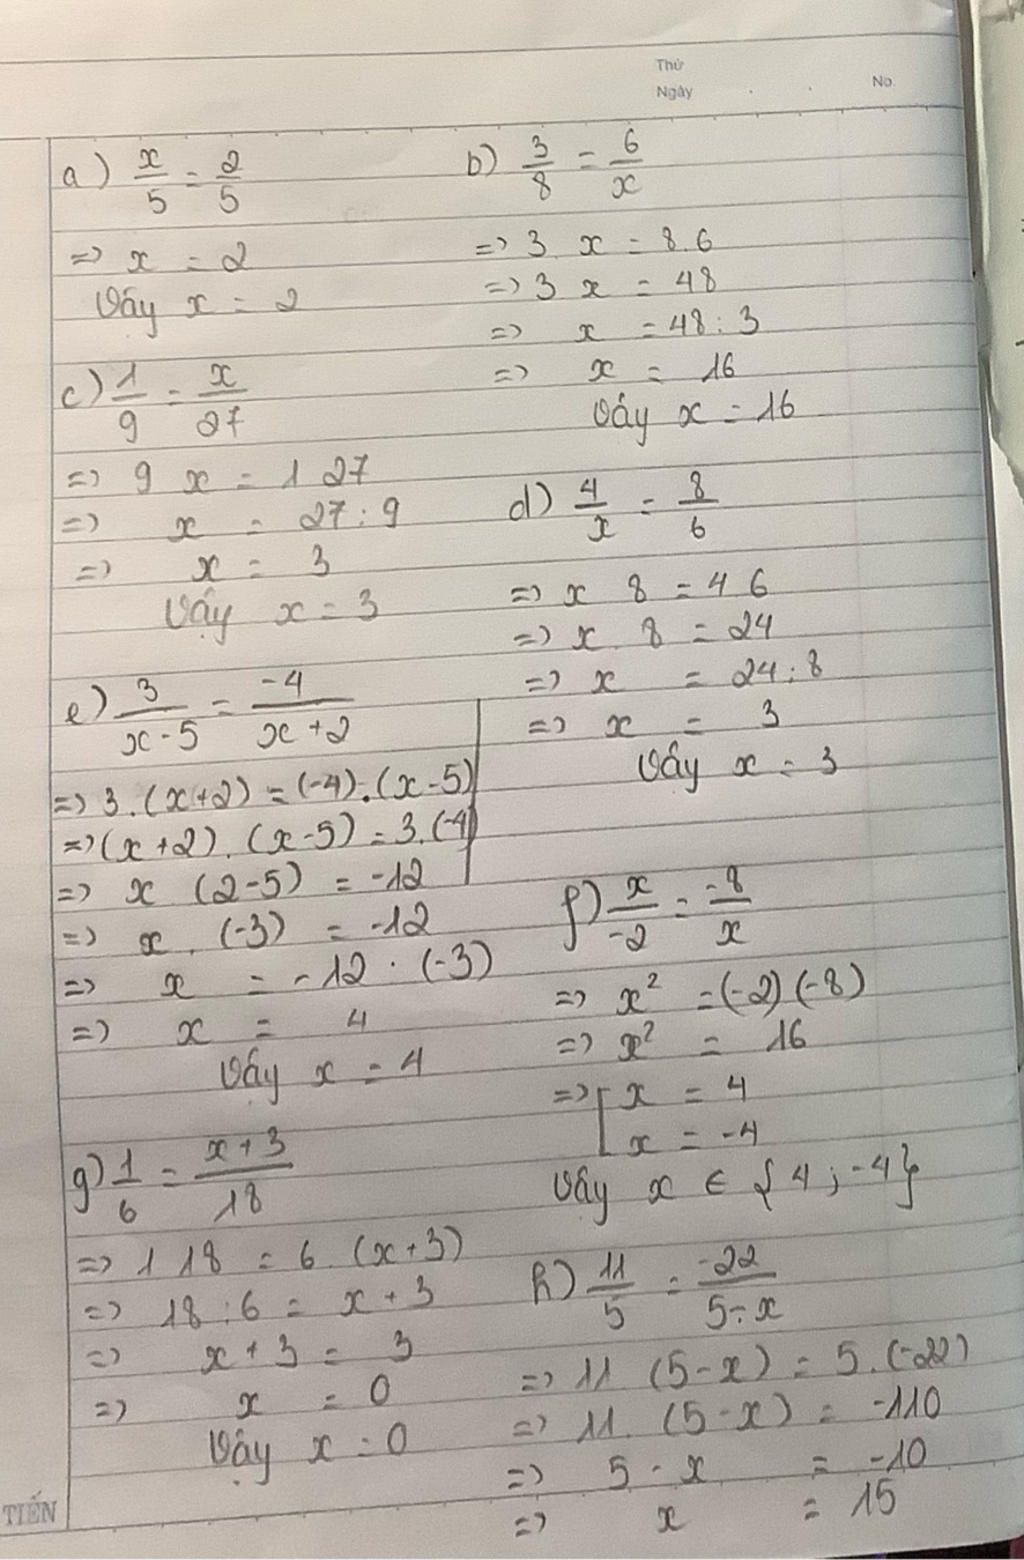 Thứ
Ngày
No.
a) x/5 = 2/5
=> x = 2
Vậy x = 2
b) 3/8 = 6/x
=> 3. x = 8.6
=> 3 x = 48
=> x = 48 : 3
=> x = 16
Vậy x = 16
c) 1/9 = x/27
=> 9 x = 1 27
=> x = 27 : 9
=> x = 3
Vậy x = 3
d) 4/x = 8/6
=> x 8 = 4 6
=> x. 8 = 24
=> x = 24 : 8
=> x = 3
Vậy x = 3
e) 3/(x-5) = -4/(x+2)
=> 3.(x+2) = (-4).(x-5)
=> (x+2). (x-5) = 3.(-4)
=> x (2-5) = -12
=> x . (-3) = -12
=> x = -12 : (-3)
=> x = 4
Vậy x = 4
f) x/-2 = -8/x
=> x² = (-2) (-8)
=> x² = 16
=> [ x = 4
x = -4
Vậy x ∈ {4 ; -4}
g) 1/6 = (x+3)/18
=> 1 18 = 6. (x+3)
=> 18 : 6 = x + 3
=> x + 3 = 3
=> x = 0
Vậy x = 0
h) 11/5 = -22/(5-x)
=> 11 (5-x) = 5.(-22)
=> 11. (5-x) = -110
=> 5 - x = -10
=> x = 15
TIẾN